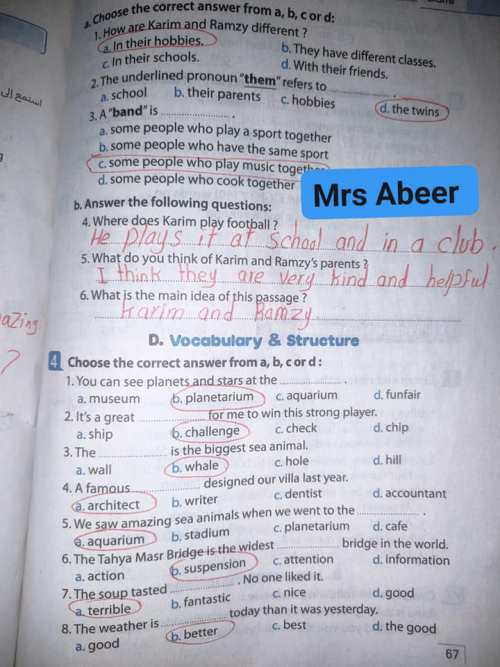 a. Choose the correct answer from a, b, c or d:
1. How are Karim and Ramzy different ?
a. In their hobbies.
b. They have different classes.
c. In their schools.
d. With their friends.
2. The underlined pronoun "them" refers to ....................
a. school b. their parents c. hobbies d. the twins
3. A "band" is .................... .
a. some people who play a sport together
b. some people who have the same sport
c. some people who play music together
d. some people who cook together
Mrs Abeer
b. Answer the following questions:
4. Where does Karim play football ?
He plays it at school and in a club.
5. What do you think of Karim and Ramzy's parents ?
I think they are very kind and helpful
6. What is the main idea of this passage ?
Karim and Ramzy
استمع إلى
azing
?
D. Vocabulary & Structure
4 Choose the correct answer from a, b, c or d :
1. You can see planets and stars at the .................... .
a. museum b. planetarium c. aquarium d. funfair
2. It's a great .................... for me to win this strong player.
a. ship b. challenge c. check d. chip
3. The .................... is the biggest sea animal.
a. wall b. whale c. hole d. hill
4. A famous .................... designed our villa last year.
a. architect b. writer c. dentist d. accountant
5. We saw amazing sea animals when we went to the .................... .
a. aquarium b. stadium c. planetarium d. cafe
6. The Tahya Masr Bridge is the widest .................... bridge in the world.
a. action b. suspension c. attention d. information
7. The soup tasted .................... . No one liked it.
a. terrible b. fantastic c. nice d. good
8. The weather is .................... today than it was yesterday.
a. good b. better c. best d. the good
67